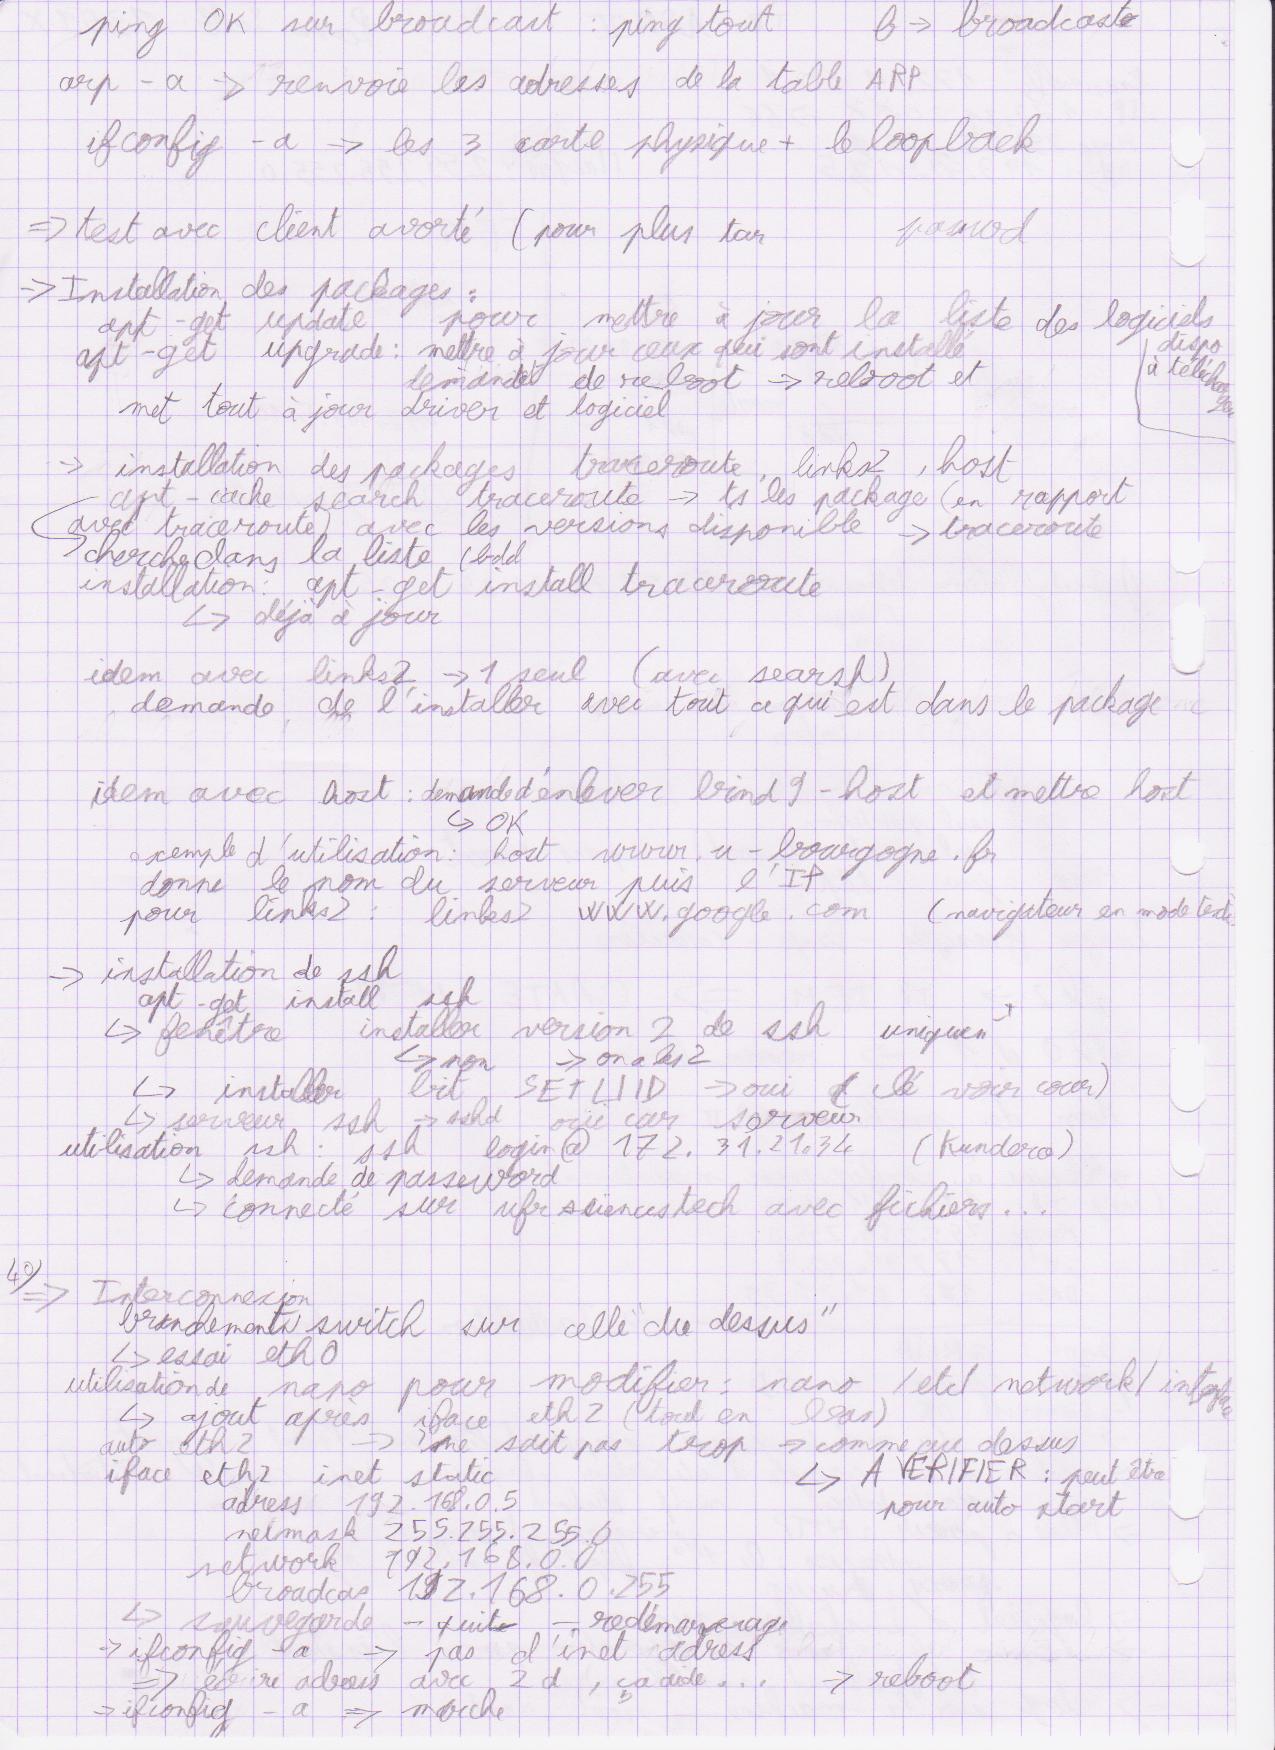 ping OK sur broadcast : ping tout b → broadcast
arp -a → renvoie les adresses de la table ARP
ifconfig -a → les 3 carte physique + le loopback
⇒ test avec client avorté (pour plus tar
⇒ Installation des packages :
apt-get update pour mettre à jour la liste des logiciels
dispo
à téléchar
ger
apt-get upgrade : mettre à jour ceux qui sont installé
demande de reboot → reboot et
met tout à jour driver et logiciel
→ installation des packages traceroute, links2, host
apt-cache search traceroute → ts les package (en rapport
avec traceroute) avec les versions disponible → traceroute
cherche dans la liste (bdd
installation : apt-get install traceroute
↳ déjà à jour
idem avec links2 → 1 seul (avec searsh)
demande de l'installer avec tout ce qui est dans le package
idem avec host : demande d'enlever bind9-host et mettre host
↳ OK
exemple d'utilisation : host www.u-bourgogne.fr
donne le nom du serveur puis l'IP
pour links2 : links2 www.google.com (navigateur en mode texte
→ installation de ssh
apt-get install ssh
↳ fenêtre installer version 2 de ssh uniquem^t
↳ non → on a les 2
↳ installer bit SETUID → oui (lé voir cour)
↳ serveur ssh → sshd oui car serveur
utilisation ssh : ssh login@172.31.21.34 (Kundera)
↳ demande de passeword
↳ connecté sur ufr sciencestech avec fichiers...
4°)
⇒ Interconnexion
switch sur celle "du dessus"
↳ essai eth0
utilisation de nano pour modifier : nano /etc/network/interfaces
↳ ajout après iface eth2 (tout en bas)
auto eth2 → ne sait pas trop → comme au dessus
iface eth2 inet static ↳ A VERIFIER : peut être
adress 192.168.0.5 pour auto start
netmask 255.255.255.0
network 192.168.0.0
broadcas 192.168.0.255
↳ sauvegarde - quite - redémarrerage
→ ifconfig -a → pas d'inet adress
⇒ écrire adress avec 2 d, ça aide... → reboot
→ ifconfig -a ⇒ marche